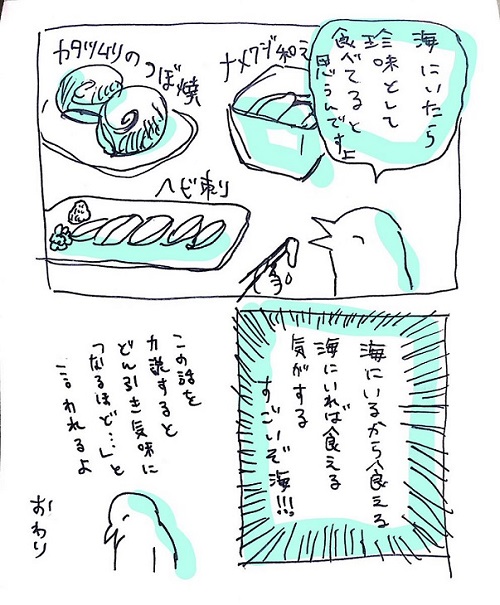 海にいたら
珍味として
食べてると
思うんですよ
ナメクジ和え
カタツムリのつぼ焼
ヘビ刺り
海にいるから食える
海にいれば食える
気がする
すごいぞ海!!!
この話を
力説すると
どん引き気味に
「なるほど…」と
言われるよ
おわり